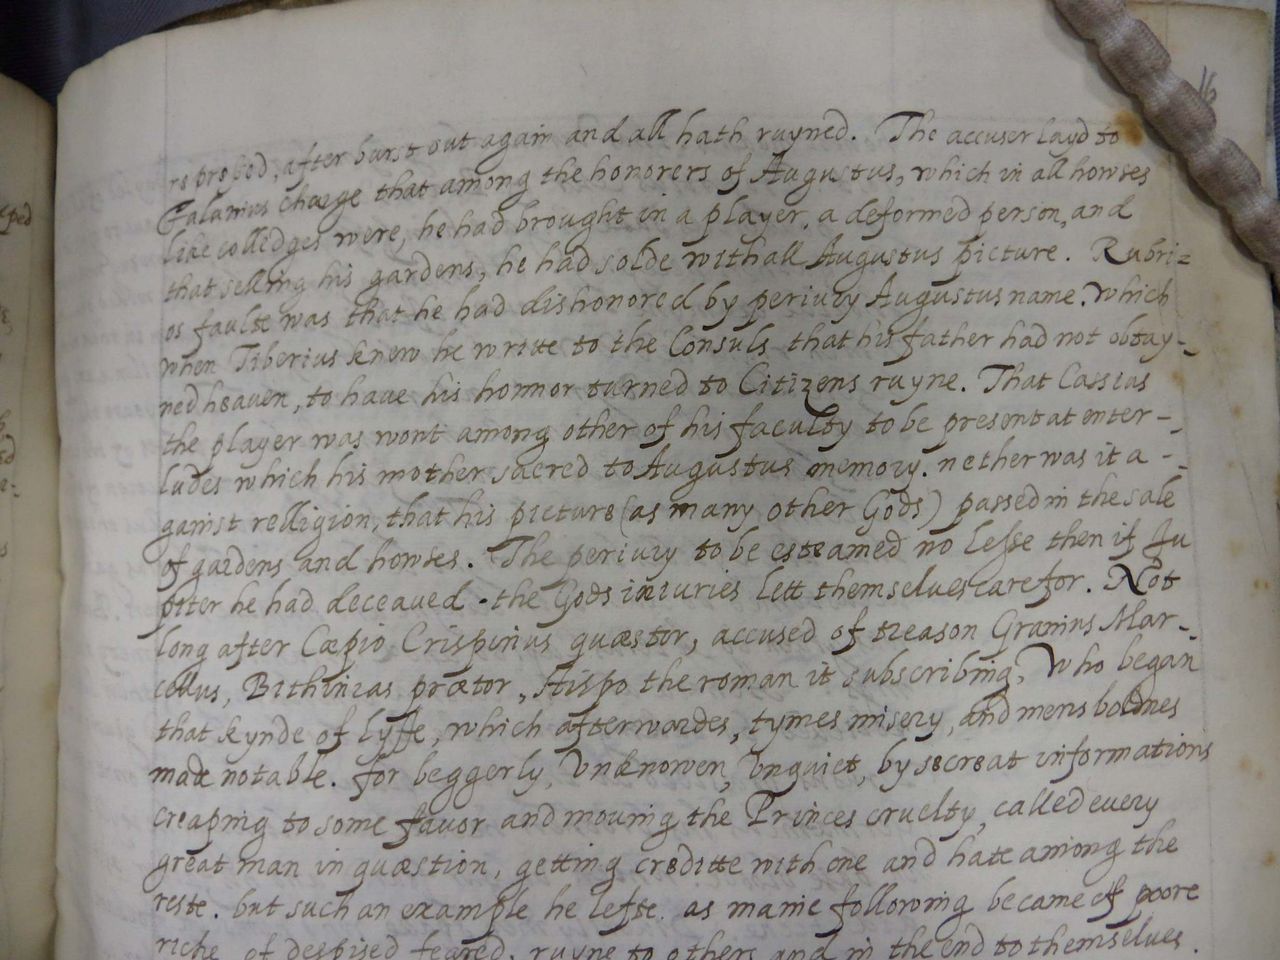 16
repressed, after burst out again and all hath ruyned. The accuser layd to
Falanius charge that among the honorers of Augustus, which in all howses
like colledges were, he had brought in a player, a deformed person, and
that selling his gardens, he had solde withall Augustus picture. Rubri=
os faulte was that he had dishonored by periury Augustus name. Which
when Tiberius knew he write to the Consuls that his father had not obtay-
ned heaven, to have his honnor turned to Citizens ruyne. That Cassius
the player was wont among other of his faculty to be present at enter-
ludes which his mother sacred to Augustus memory. nether was it a-
gainst relligion, that his picture (as many other Gods) passed in the sale
of gardens and howses. The periury to be esteamed no lesse then if Ju
piter he had deceaved - the Gods iniuries lett themselves care for. Not
long after Cæpio Crispinus quæstor, accused of treason Granius Mar-
cellus, Bithinias prætor, Hispo the roman it subscribing, Who began
that kynde of lyffe, which afterwardes, tymes misery, and mens boldnes
made notable. for beggerly, Unknowen, Unquiet, by secreat informations
creaping to some favor and mouing the Princes cruelty, called euery
great man in quæstion, getting creditte with one and hate among the
reste. but such an example he lefte. as manie following became of poore
riche, of despised feared, ruyne to others and in the end to themselues.
ped